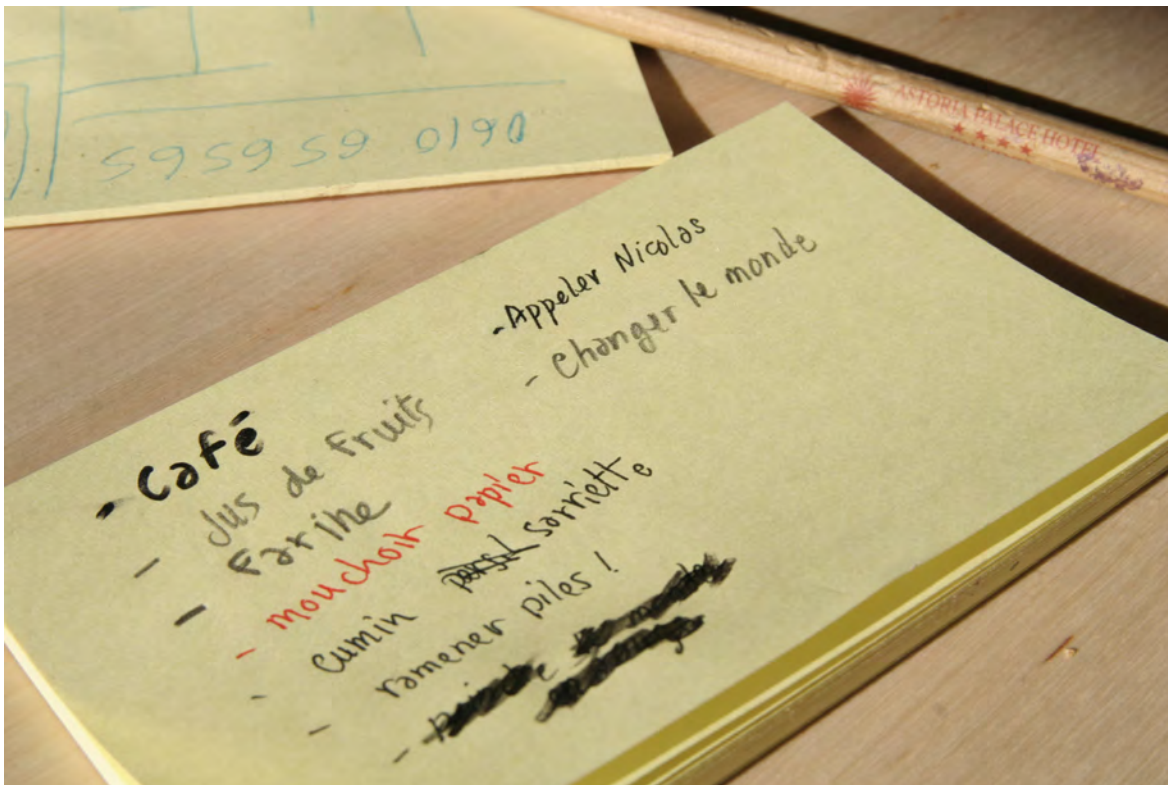 595959 0190
ASTORIA PALACE HOTEL
- Appeler Nicolas
- Changer le monde
- Café
- Jus de Fruits
- Farine
- mouchoir papier
- cumin persil sarriette
- ramener piles !